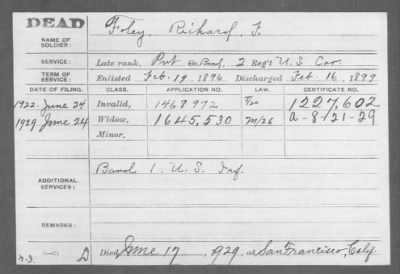 DEAD
NAME OF SOLDIER: Foley, Richard F.
SERVICE: Late rank, Pvt Co. Band, 2 Reg't U.S. Cav.
TERM OF SERVICE: Enlisted Feb. 19, 1896. Discharged Feb. 16, 1899
DATE OF FILING. CLASS. APPLICATION NO. LAW. CERTIFICATE NO.
1922. June 24 Invalid, 1468972 1227,602
1929 June 24 Widow, 1645,530 M/26 A-8-21-29
Minor,
ADDITIONAL SERVICES: Band 1. U.S. Inf.
REMARKS:
D Died June 17, 1929, at San Francisco, Calif.